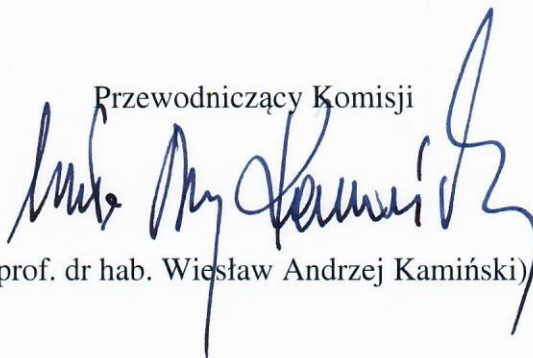 Przewodniczący Komisji
prof. dr hab. Wiesław Andrzej Kamiński)